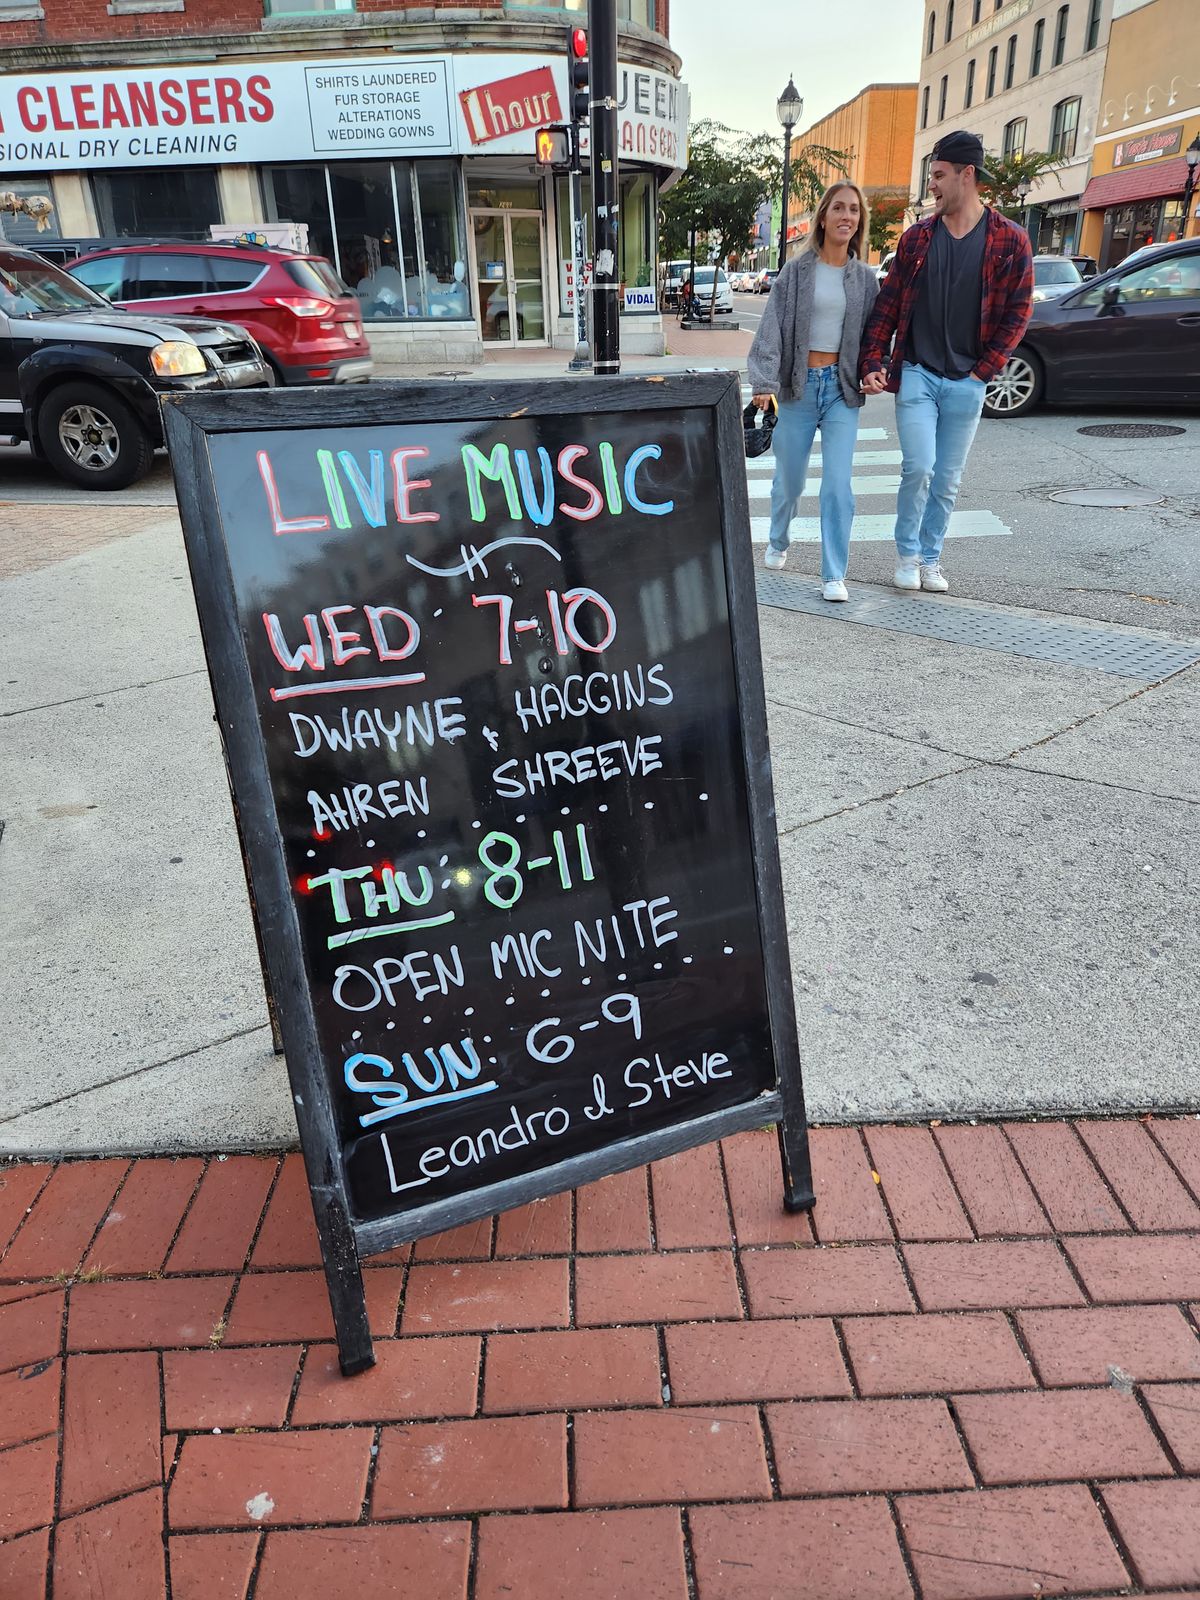 CLEANSERS
SIONAL DRY CLEANING
SHIRTS LAUNDERED
FUR STORAGE
ALTERATIONS
WEDDING GOWNS
1 hour
UEEN
LEANSERS
VIDAL
LIVE MUSIC
WED: 7-10
DWAYNE & HAGGINS
AHREN SHREEVE
THU: 8-11
OPEN MIC NITE
SUN: 6-9
Leandro & Steve